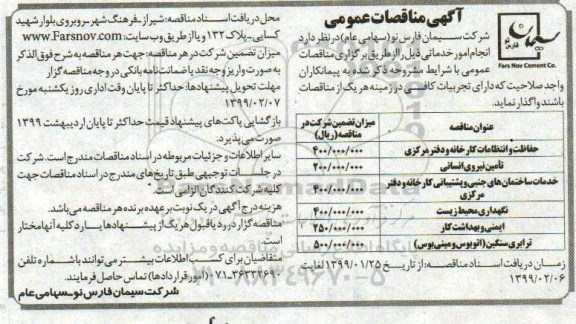 آگهی مناقصات عمومی
سیمان
فارس نو
Fars Nov Cement Co.
شرکت سیمان فارس نو (سهامی عام) در نظر دارد
انجام امور خدماتی ذیل را از طریق برگزاری مناقصات
عمومی با شرایط مشروحه ذکر شده به پیمانکاران
واجد صلاحیت که دارای تجربیات کافی در زمینه هر یک از مناقصات
باشند واگذار نماید.
عنوان مناقصه میزان تضمین شرکت در مناقصه (ریال)
حفاظت و انتظامات کارخانه و دفتر مرکزی ۴۰۰/۰۰۰/۰۰۰
تأمین نیروی انسانی ۲۰۰/۰۰۰/۰۰۰
خدمات ساختمان های جنبی و پشتیبانی کارخانه و دفتر مرکزی ۴۰۰/۰۰۰/۰۰۰
نگهداری محیط زیست ۴۰۰/۰۰۰/۰۰۰
ایمنی و بهداشت کار ۲۵۰/۰۰۰/۰۰۰
ترابری سنگین (اتوبوس و مینی بوس) ۵۰۰/۰۰۰/۰۰۰
زمان دریافت اسناد مناقصه: از تاریخ ۱۳۹۹/۰۱/۲۵ لغایت
۱۳۹۹/۰۲/۰۶
محل دریافت اسناد مناقصه: شیراز ـ فرهنگ شهر ـ روبروی بلوار شهید
کسایی ـ پلاک ۱۳۲ و یا از طریق وب سایت: www.Farsnov.com
میزان تضمین شرکت در هر مناقصه: جهت هر مناقصه به شرح فوق الذکر
به صورت واریز وجه نقد یا ضمانت نامه بانکی در وجه مناقصه گزار
مهلت تحویل پیشنهادها: حداکثر تا پایان وقت اداری روز یکشنبه مورخ
۱۳۹۹/۰۲/۰۷
بازگشایی پاکت های پیشنهاد قیمت حداکثر تا پایان اردیبهشت ۱۳۹۹
صورت می پذیرد.
سایر اطلاعات و جزئیات مربوطه در اسناد مناقصات مندرج است. شرکت
در جلسات توجیهی طبق تاریخ های مندرج در اسناد مناقصات جهت
کلیه شرکت کنندگان الزامی است.
هزینه درج آگهی در یک نوبت بر عهده برنده هر مناقصه می باشد.
مناقصه گزار در رد یا قبول هر یک از پیشنهادها یا رد کلیه آنها مختار
است
متقاضیان برای کسب اطلاعات بیشتر می توانند با شماره تلفن
۰۷۱-۳۶۳۳۲۶۹۰ (امور قراردادها) تماس حاصل فرمایند.
شرکت سیمان فارس نو ـ سهامی عام
۰۲۱-۸۸۳۴۹۶۷۰-۵